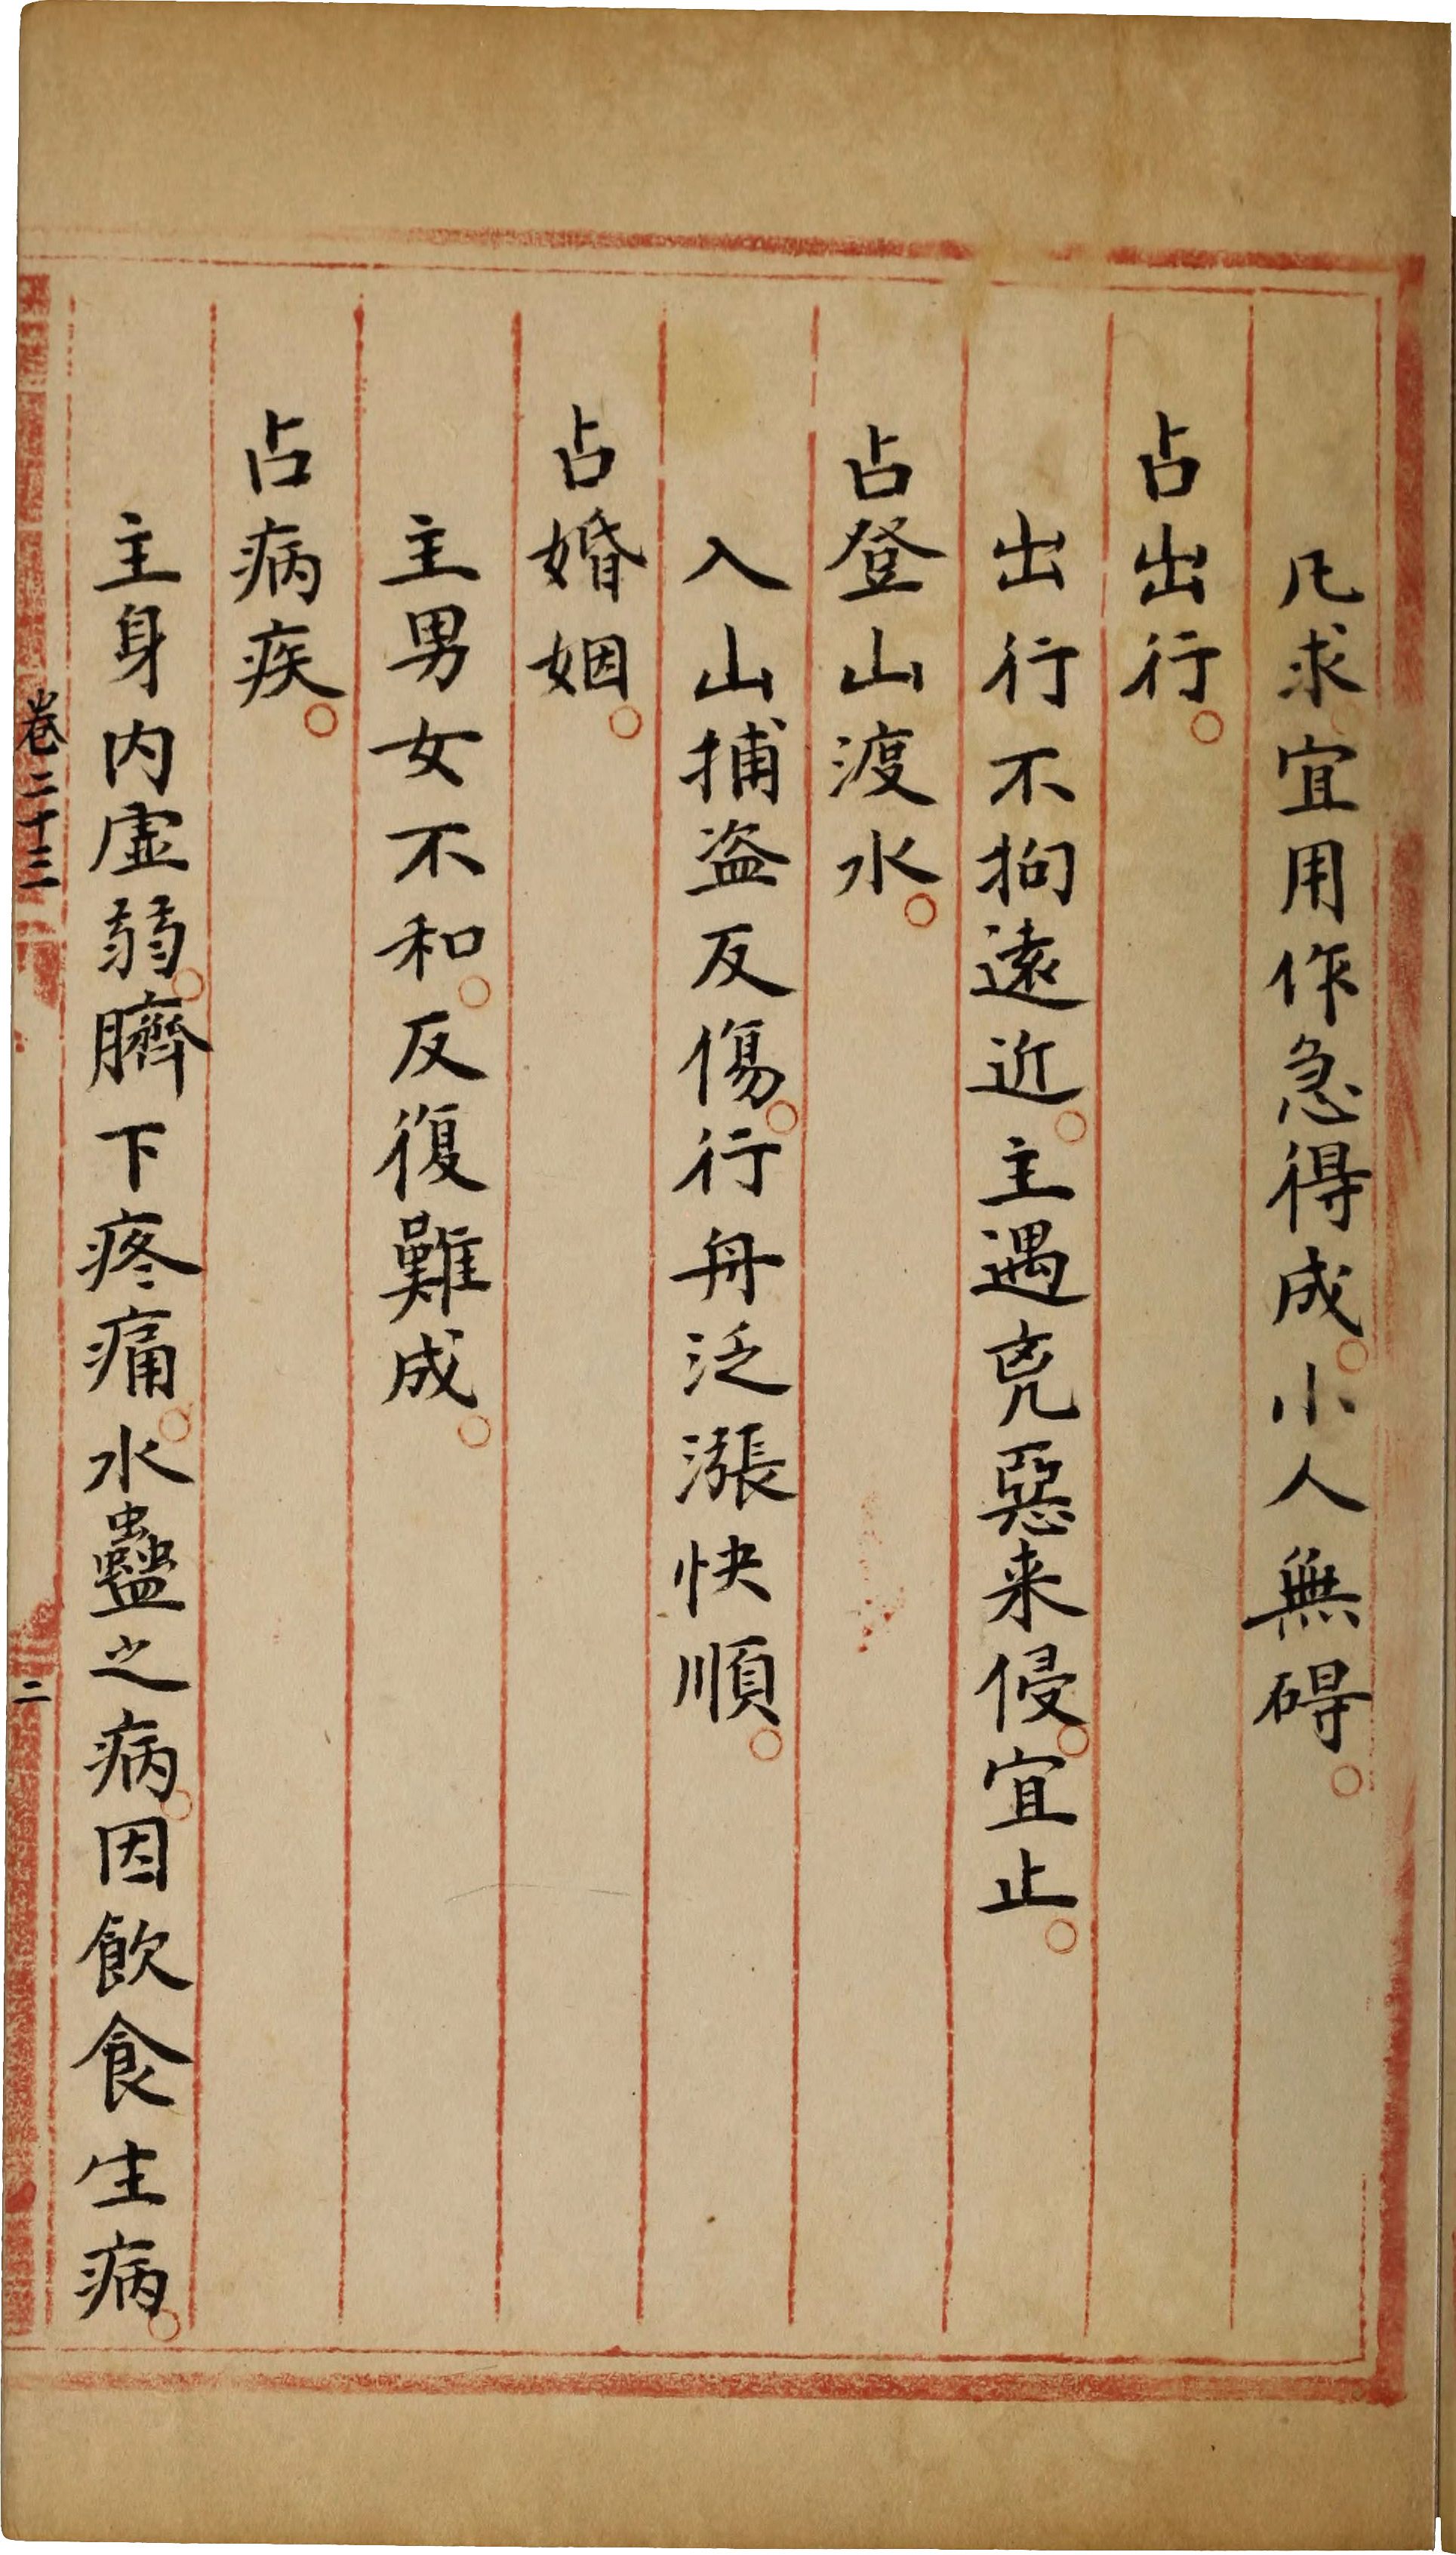 凡求宜用作急得成。小人無碍。
占出行。
出行不拘遠近。主遇兇惡来侵。宜止。
占登山渡水。
入山捕盗反傷。行舟泛漲快順。
占婚姻。
主男女不和。反復難成。
占病疾。
主身内虛弱。臍下疼痛。水蠱之病。因飲食生病。
卷二十三
二